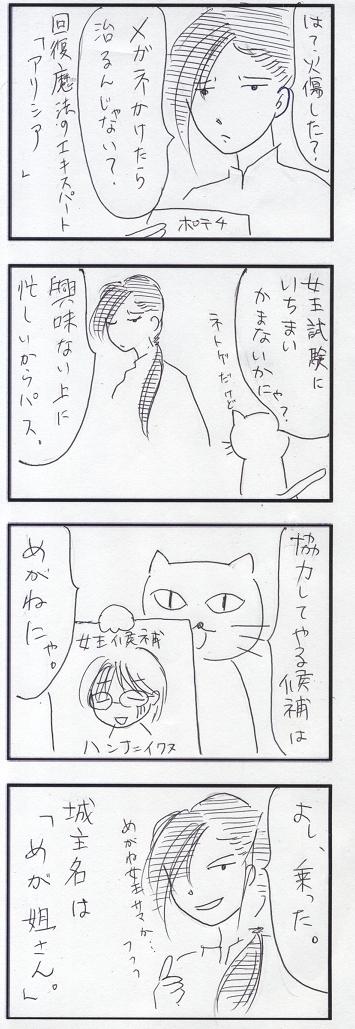 は?火傷した?
メガネかけたら
治るんじゃない?
回復魔法のエキスパート
「アリシア」
ポテチ
女王試験に
いちまい
かまないかにゃ?
ネトゲだけど
興味ない上に
忙しいからパス。
協力してやる候補は
女王候補
ハンナニイクス
めがねにゃ。
よし、乗った。
めがね女王サマか…
フフフ
城主名は
「めが姐さん。」